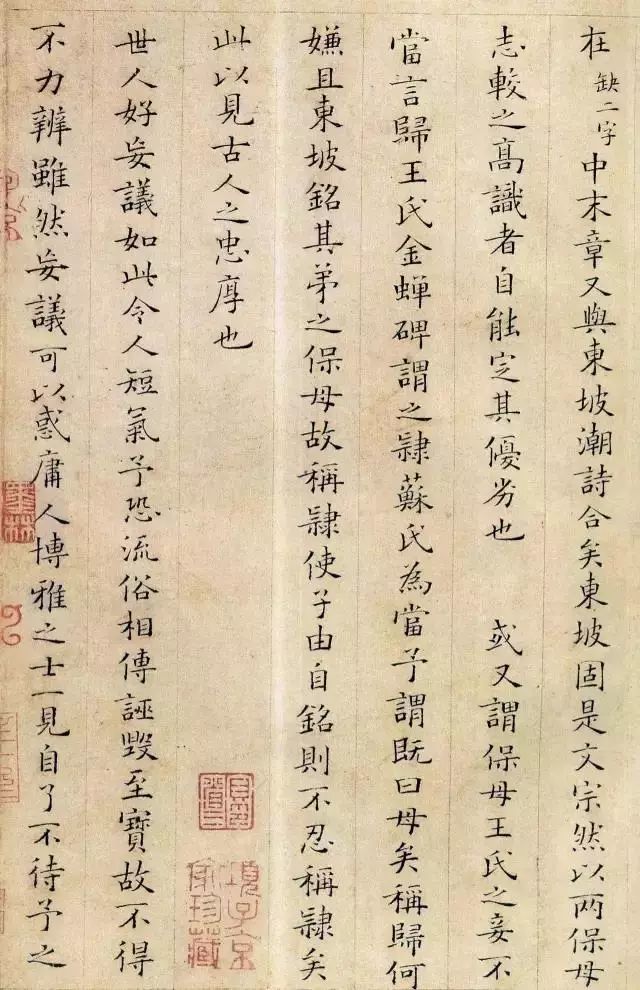 在缺二字中末章又與東坡潮詩合矣東坡固是文宗然以两保母
志較之髙識者自能定其優劣也　或又謂保母王氏之妾不
當言歸王氏金蟬碑謂之隸蘇氏為當予謂既曰母矣稱歸何
嫌且東坡銘其弟之保母故稱隸使子由自銘則不忍稱隸矣
此以見古人之忠厚也
世人好妄議如此令人短氣予恐流俗相傳誣毀至寶故不得
不力辨雖然妄議可以惑庸人博雅之士一見自了不待予之
項子京
家珍藏